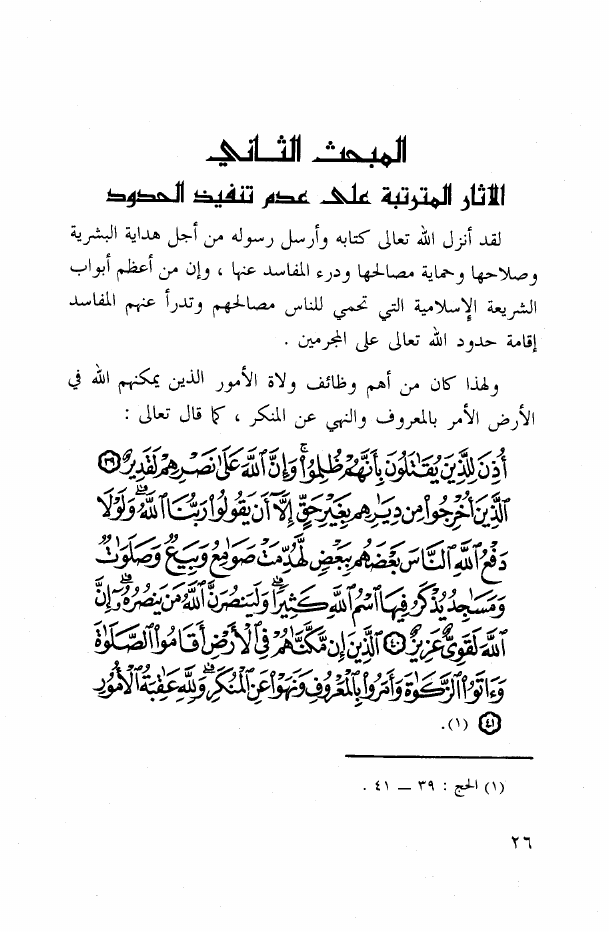 المبحث الثاني
الآثار المترتبة على عدم تنفيذ الحدود
لقد أنزل الله تعالى كتابه وأرسل رسوله من أجل هداية البشرية
وصلاحها وحماية مصالحها ودرء المفاسد عنها ، وإن من أعظم أبواب
الشريعة الإسلامية التي تحمي للناس مصالحهم وتدرأ عنهم المفاسد
إقامة حدود الله تعالى على المجرمين .
ولهذا كان من أهم وظائف ولاة الأمور الذين يمكنهم الله في
الأرض الأمر بالمعروف والنهي عن المنكر ، كما قال تعالى :
أُذِنَ لِلَّذِينَ يُقَٰتَلُونَ بِأَنَّهُمْ ظُلِمُوا۟ ۚ وَإِنَّ ٱللَّهَ عَلَىٰ نَصْرِهِمْ لَقَدِيرٌ ۝٣٩
ٱلَّذِينَ أُخْرِجُوا۟ مِن دِيَٰرِهِم بِغَيْرِ حَقٍّ إِلَّآ أَن يَقُولُوا۟ رَبُّنَا ٱللَّهُ ۗ وَلَوْلَا
دَفْعُ ٱللَّهِ ٱلنَّاسَ بَعْضَهُم بِبَعْضٍ لَّهُدِّمَتْ صَوَٰمِعُ وَبِيَعٌ وَصَلَوَٰتٌ
وَمَسَٰجِدُ يُذْكَرُ فِيهَا ٱسْمُ ٱللَّهِ كَثِيرًا ۗ وَلَيَنصُرَنَّ ٱللَّهُ مَن يَنصُرُهُۥٓ ۗ إِنَّ
ٱللَّهَ لَقَوِىٌّ عَزِيزٌ ۝٤٠ ٱلَّذِينَ إِن مَّكَّنَّٰهُمْ فِى ٱلْأَرْضِ أَقَامُوا۟ ٱلصَّلَوٰةَ
وَءَاتَوُا۟ ٱلزَّكَوٰةَ وَأَمَرُوا۟ بِٱلْمَعْرُوفِ وَنَهَوْا۟ عَنِ ٱلْمُنكَرِ ۗ وَلِلَّهِ عَٰقِبَةُ ٱلْأُمُورِ
۝٤١ (١).
(١) الحج : ٣٩ – ٤١ .
٢٦